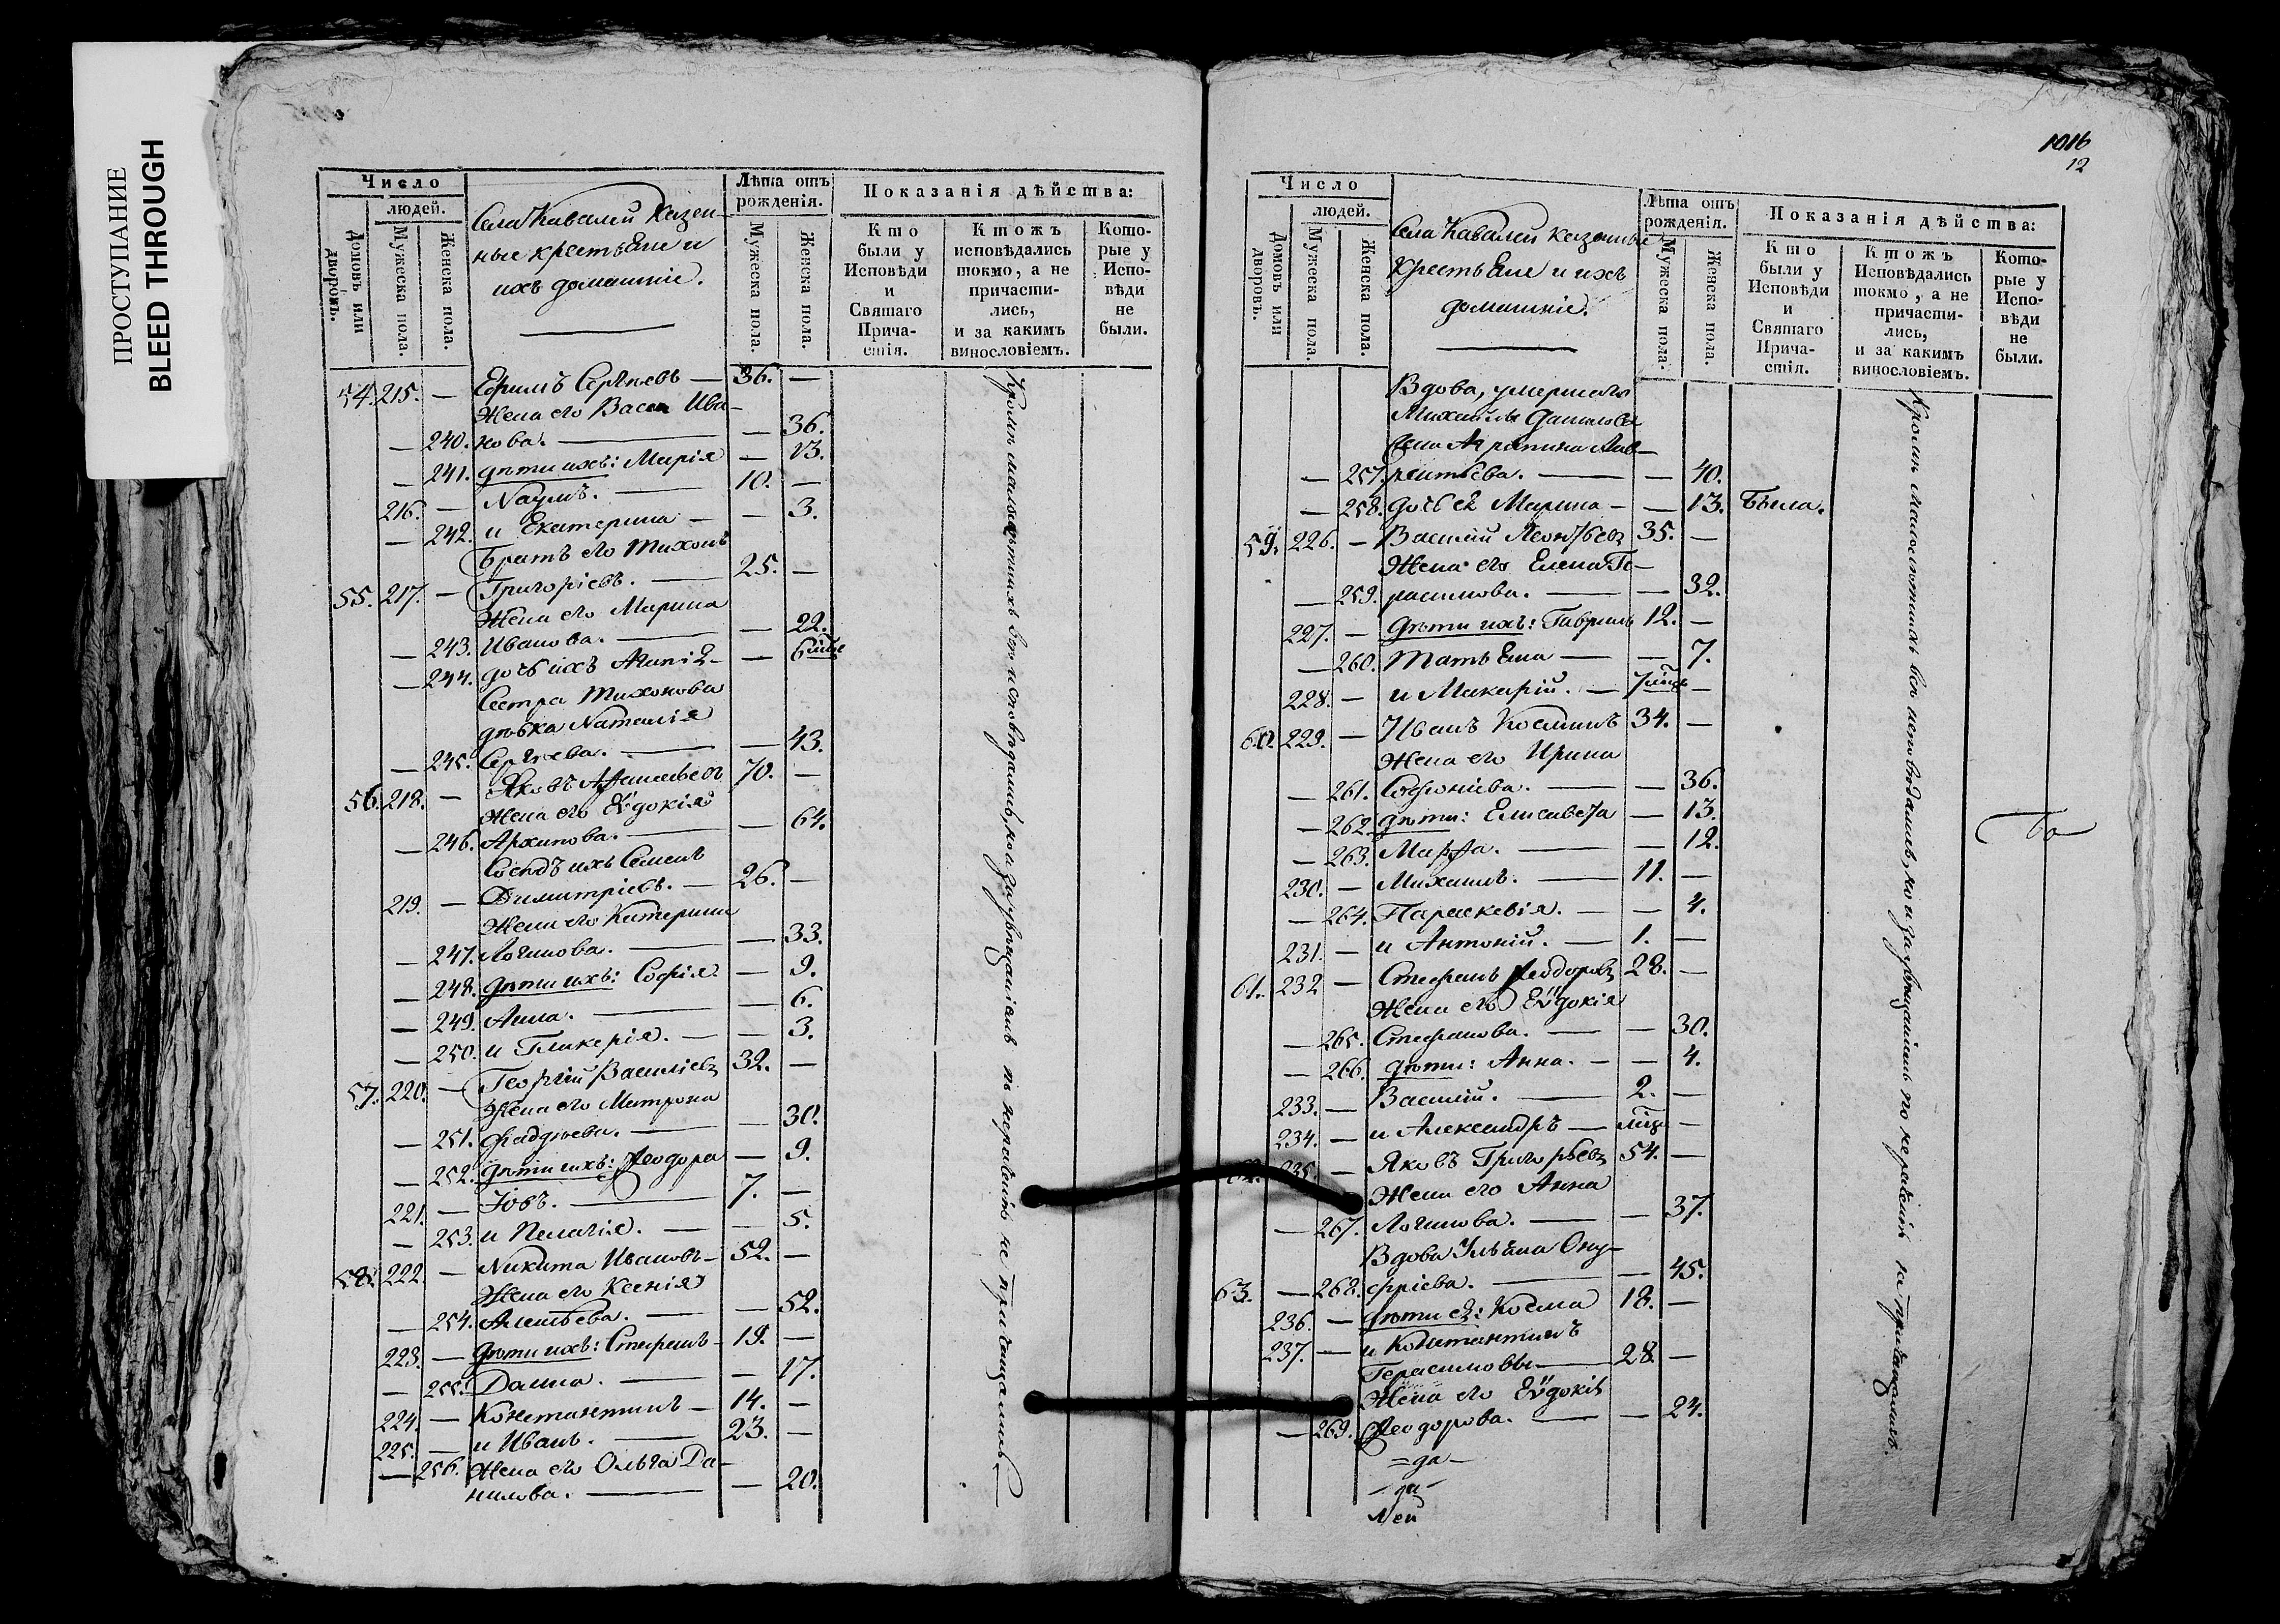 ПРОСТУПАНИЕ
BLEED THROUGH
Число
людей.
Домовъ или дворовъ.
Мужеска пола.
Женска пола.
Села Кавалеи Казен-
ные крестьяне и
ихъ домашніе.
Лѣта отъ
рожденія.
Мужеска пола.
Женска пола.
Показанія дѣйства:
Кто
были у
Исповѣди
и
Святаго
Прича-
стія.
Ктожъ
исповѣдались
токмо, а не
причасти-
лись,
и за какимъ
винословіемъ.
Кото-
рые у
Испо-
вѣди
не
были.
54. 215. — Ефимъ Сергѣевъ — 36. —
Жена его Васса Ива-
— 240. нова. — — 36.
— 241. дѣти ихъ: Марія — 13.
216. — Наумъ. — 10. —
— 242. и Екатерина — — 3.
Братъ его Тихонъ
55. 217. — Григоріевъ. — 25. —
Жена его Марина
— 243. Иванова. — — 22.
— 244. дочь ихъ — 6
Сестра Тихонова
дѣвка Наталія
— 245. Сергѣева. — — 43.
56. 218. — Яковъ 70. —
Жена его Еѵдокія
— 246. Архипова. — — 64.
Сосѣдъ ихъ Семенъ
219. — Димитріевъ. — 26. —
Жена его Катерина
— 247. Логинова. — — 33.
— 248. дѣти ихъ: Софія — 9.
— 249. Анна. — — 6.
— 250. и Гликерія. — — 3.
57. 220. — Георгій Васильевъ 32. —
Жена его Матрона
— 251. Фаддѣева. — — 30.
— 252. дѣти ихъ: Ѳеодора — 9.
221. — Іовъ. — 7. —
— 253. и Пелагія. — — 5.
58. 222. — Никита Ивановъ — 52. —
Жена его Ксенія
— 254. — — 52.
223. — дѣти ихъ: Стефанъ — 19. —
— 255. Домна. — — 17.
224. — Константинъ — 14. —
225. — и Иванъ. — 23. —
— 256. Жена его Ольга Да-
нилова. — — 20.
Кромѣ малолѣтнихъ всѣ исповѣдались, но и за увѣщаніемъ по нерадѣнію не пріобщались.
1016
12
Число
людей.
Домовъ или дворовъ.
Мужеска пола.
Женска пола.
Села Кавалеи казенные
крестьяне и ихъ
домашніе.
Лѣта отъ
рожденія.
Мужеска пола.
Женска пола.
Показанія дѣйства:
Кто
были у
Исповѣди
и
Святаго
Прича-
стія.
Ктожъ
Исповѣдались
токмо, а не
причасти-
лись,
и за какимъ
винословіемъ.
Кото-
рые у
Испо-
вѣди
не
были.
Вдова, умершаго
Михаила Данилова
жена Агрипина Лав-
— 257. рентьева. — — 40.
— 258. дочь ея Марина — — 13. Была.
59. 226. — Василій Леонтьевъ 35. —
Жена его Елена Ге-
— 259. расимова. — — 32.
227. — дѣти ихъ: Гавріилъ 12. —
— 260. Татьяна — — 7.
228. — и Макарій. — 7 —
60. 229. — Иванъ Косминъ 34. —
Жена его Ирина
— 261. Софоніева. — — 36.
— 262. дѣти: Елисавета — 13.
— 263. Марфа. — — 12.
230. — Михаилъ. — 11. —
— 264. Параскевія. — — 4.
231. — и Антоній. — 1. —
61. 232 — Стефанъ Ѳеодоровъ 28. —
Жена его Еѵдокія
— 265. Стефанова. — — 30.
— 266. дѣти: Анна. — — 4.
233. — Василій. — 2. —
234. — и Александръ — —
62. 235. — Яковъ Григорьевъ 54. —
Жена его Анна
— 267. Логинова. — — 37.
Вдова Ульяна Ону-
63. — 268. фріева. — — 45.
236. — дѣти ея: Косма 18. —
237. — и Константинъ
Герасимовы — 28. —
Жена его Еѵдокія
— 269. Ѳеодорова. — — 24.
Кромѣ малолѣтнихъ всѣ исповѣдались, но и за увѣщаніемъ по нерадѣнію не пріобщались.
=да—